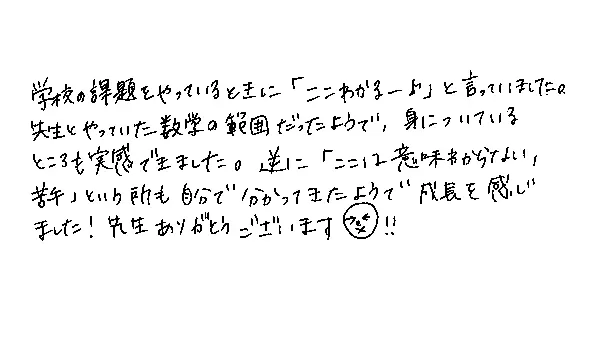 学校の課題をやっているときに「ここわかるーよ」と言っていました。
先生とやっていた数学の範囲だったようで、身についている
ところも実感できました。逆に「ここは意味わからない、
苦手」という所も自分で分かってきたようで成長を感じ
ました！先生ありがとうございます!!